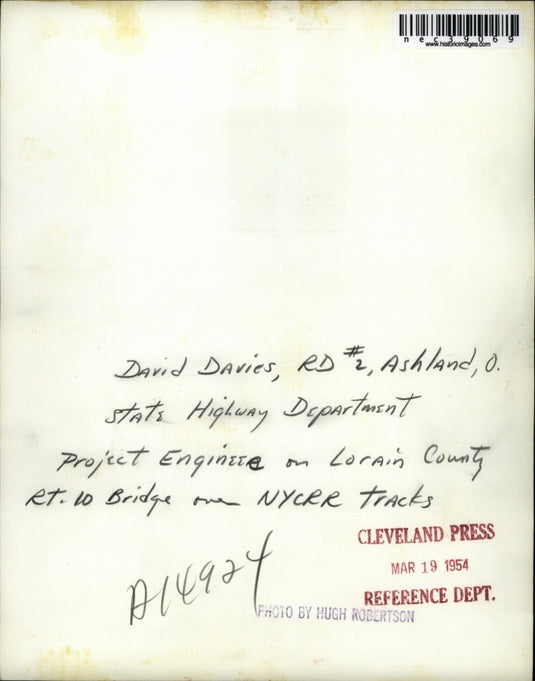 nec39069
www.historicimages.com
David Davies, RD #2, Ashland, O.
State Highway Department
Project Engineer on Lorain County
Rt. 10 Bridge over NYCRR tracks
CLEVELAND PRESS
MAR 19 1954
REFERENCE DEPT.
A14924
PHOTO BY HUGH ROBERTSON